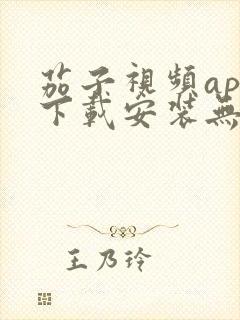 茄子視頻ap
下載安裝無
王乃玲